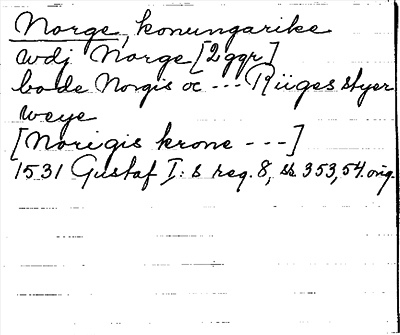 Norge, konungarike
wdj Norge [2 ggr]
bode Norgis oc --- Riiges styer
weye
[Norigis krone ---]
1531 Gustaf I:s reg. 8, ss. 353, 54. orig.